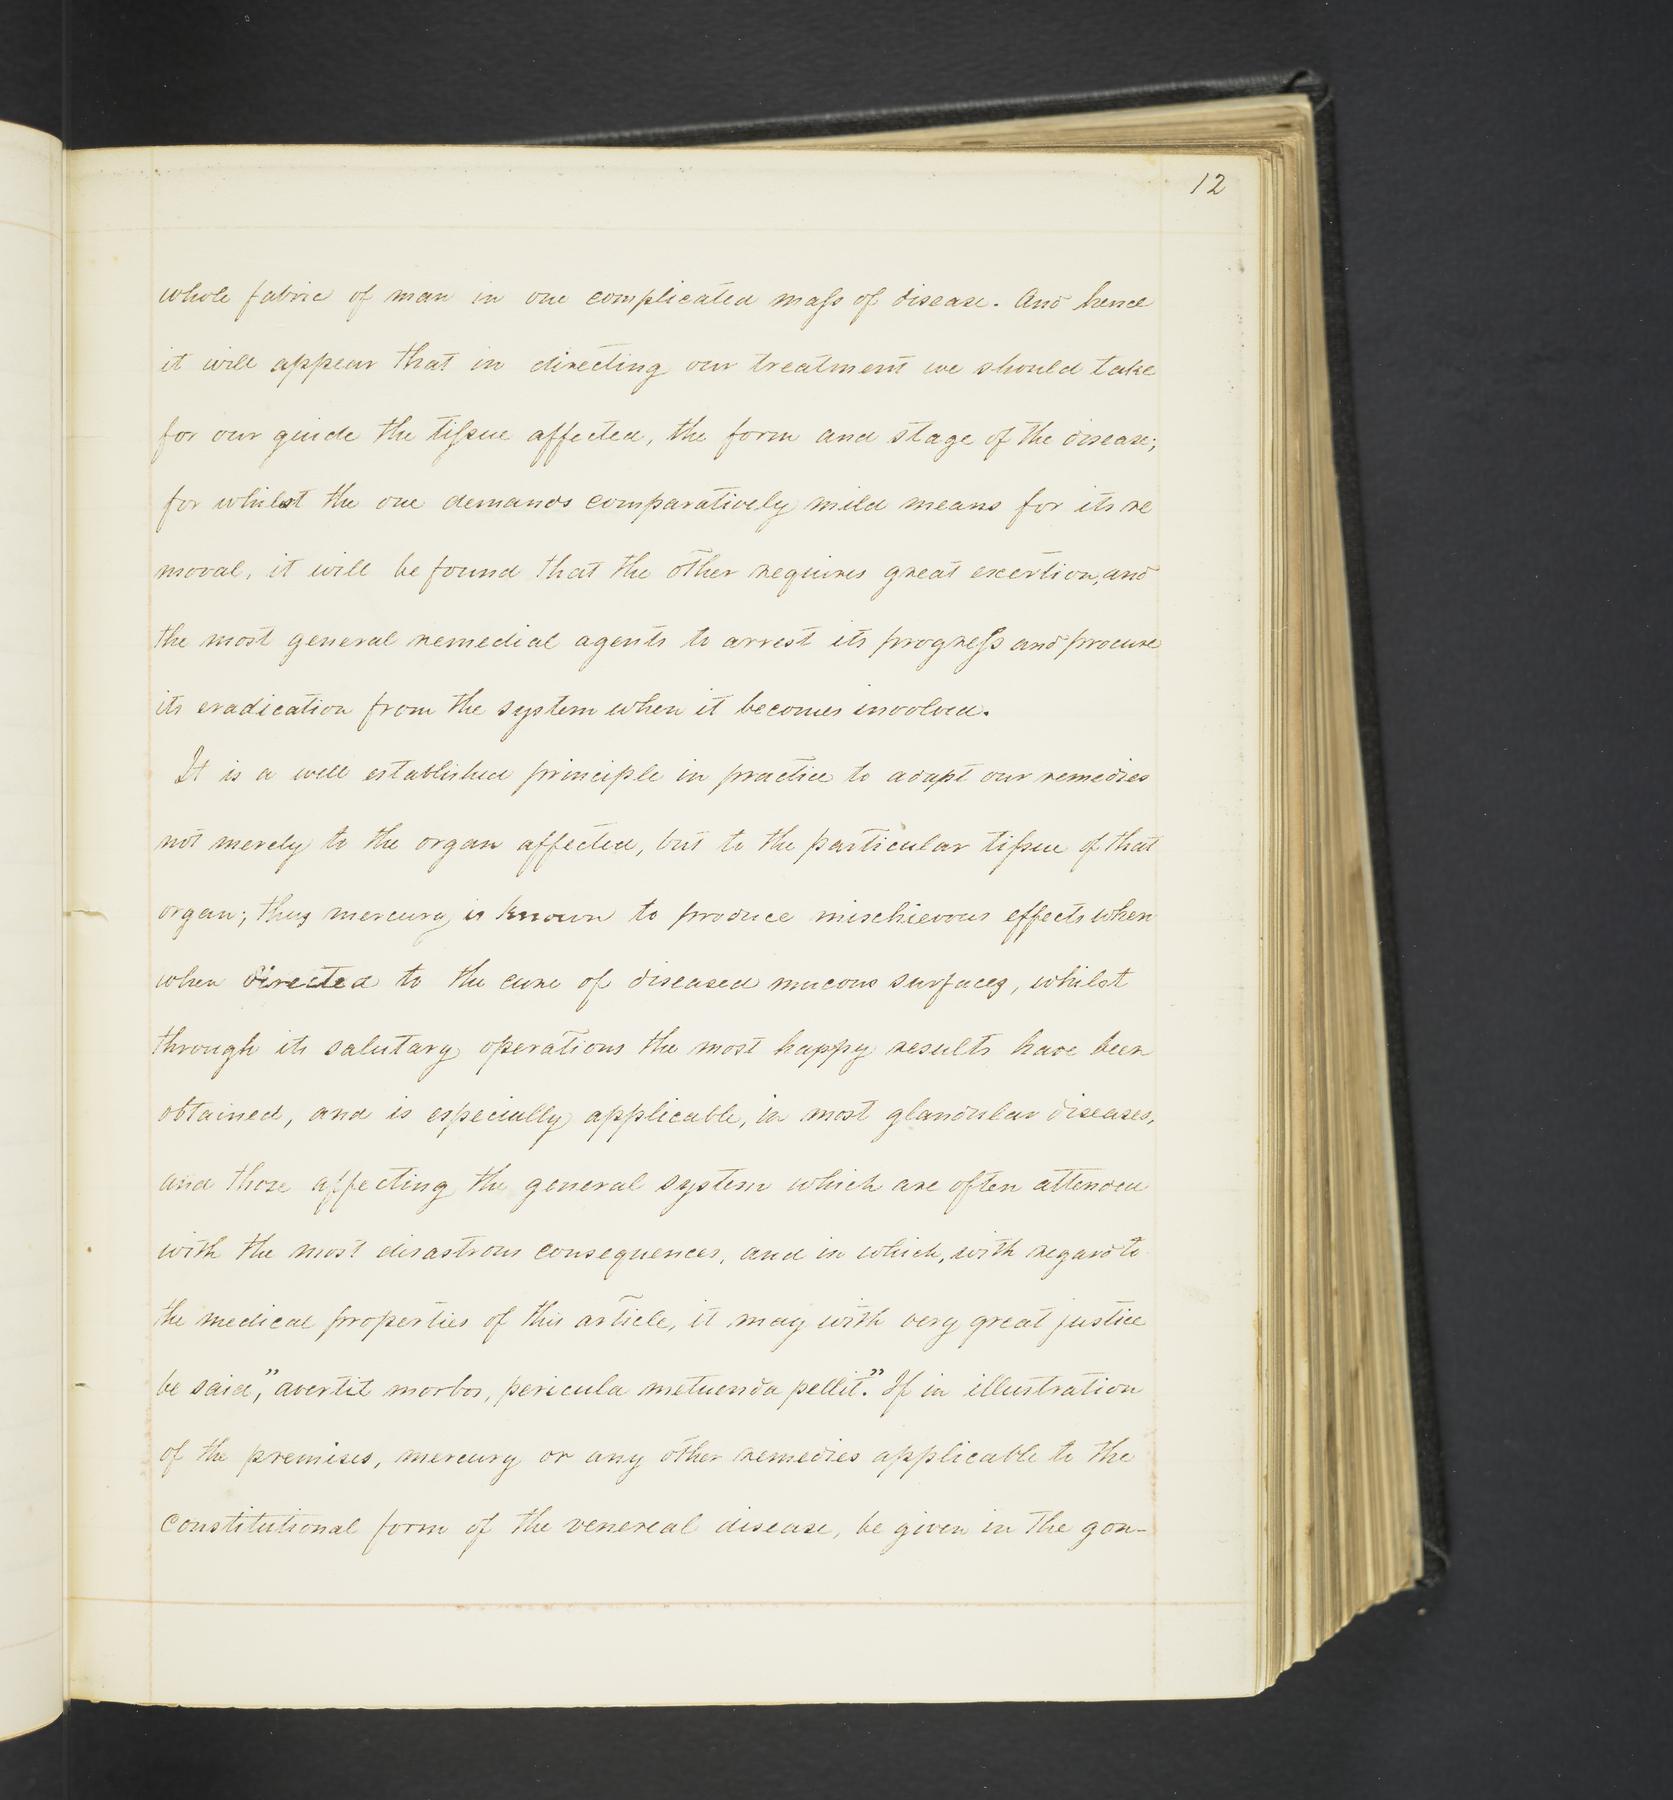 12
whole fabric of man in one complicated mass of disease. And hence
it will appear that in directing our treatment we should take
for our guide the tissue affected, the form and stage of the disease;
for whilst the one demands comparatively mild means for its re
moval, it will be found that the other requires great exertion, and
the most general remedial agents to arrest its progress and procure
its eradication from the system when it becomes involved.
It is a well established principle in practice to adapt our remedies
not merely to the organ affected, but to the particular tissue of that
organ; thus mercury is known to produce mischievous effects when
when directed to the cure of diseased mucous surfaces, whilst
through its salutary operations the most happy results have been
obtained, and is especially applicable, in most glandular diseases,
and those affecting the general system which are often attended
with the most disastrous consequences, and in which, with regard to
the medical properties of this article, it may with very great justice
be said, "avertit morbos, pericula metuenda pellit." If in illustration
of the premises, mercury or any other remedies applicable to the
constitutional form of the venereal disease, be given in the gon-